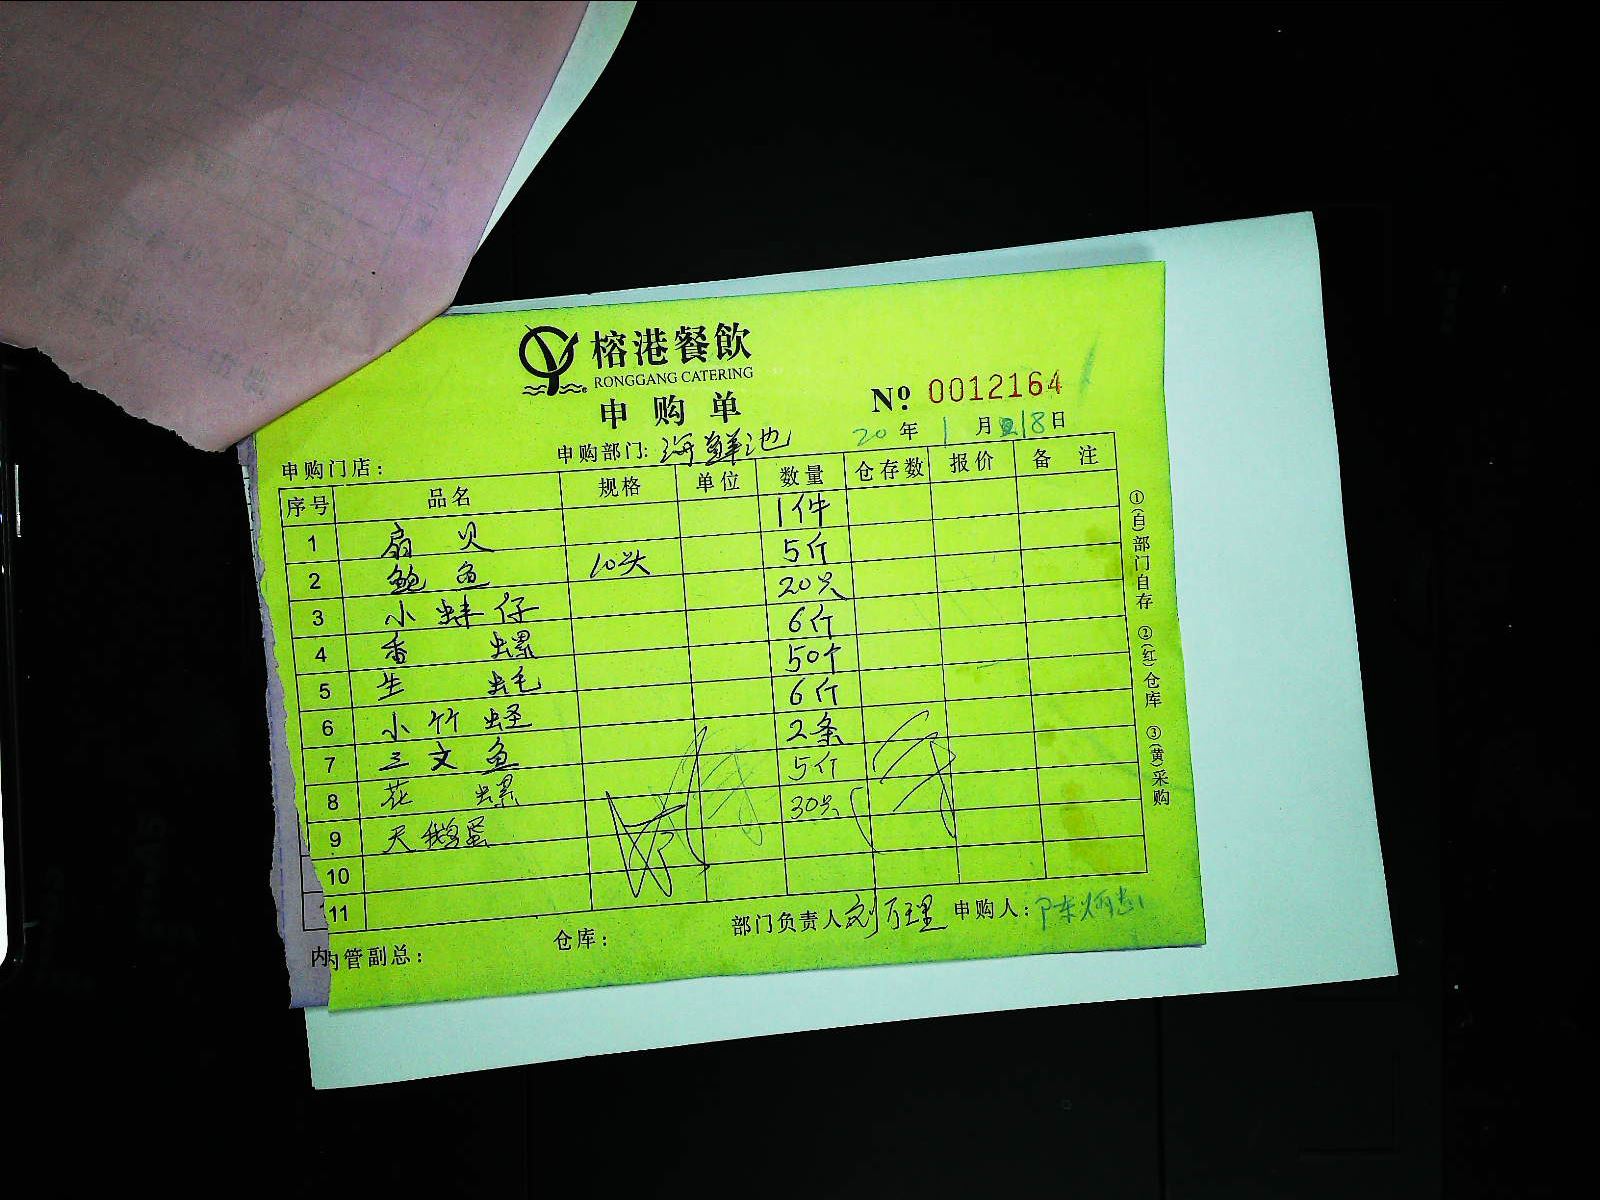 榕港餐飲
RONGGANG CATERING
申购单
Nº 0012164
20年1月18日
申购门店: 申购部门:海鲜池
序号 品名 规格 单位 数量 仓存数 报价 备注
1 扇贝 1件
2 鲍鱼 10头 5斤
3 小蚌仔 20只
4 香螺 6斤
5 生蚝 50个
6 小竹蛏 6斤
7 三文鱼 2条
8 花螺 5斤
9 天鹅蛋 30只
10
11
内管副总: 仓库: 部门负责人刘万理 申购人:陈
①(白)部门自存 ②(红)仓库 ③(黄)采购